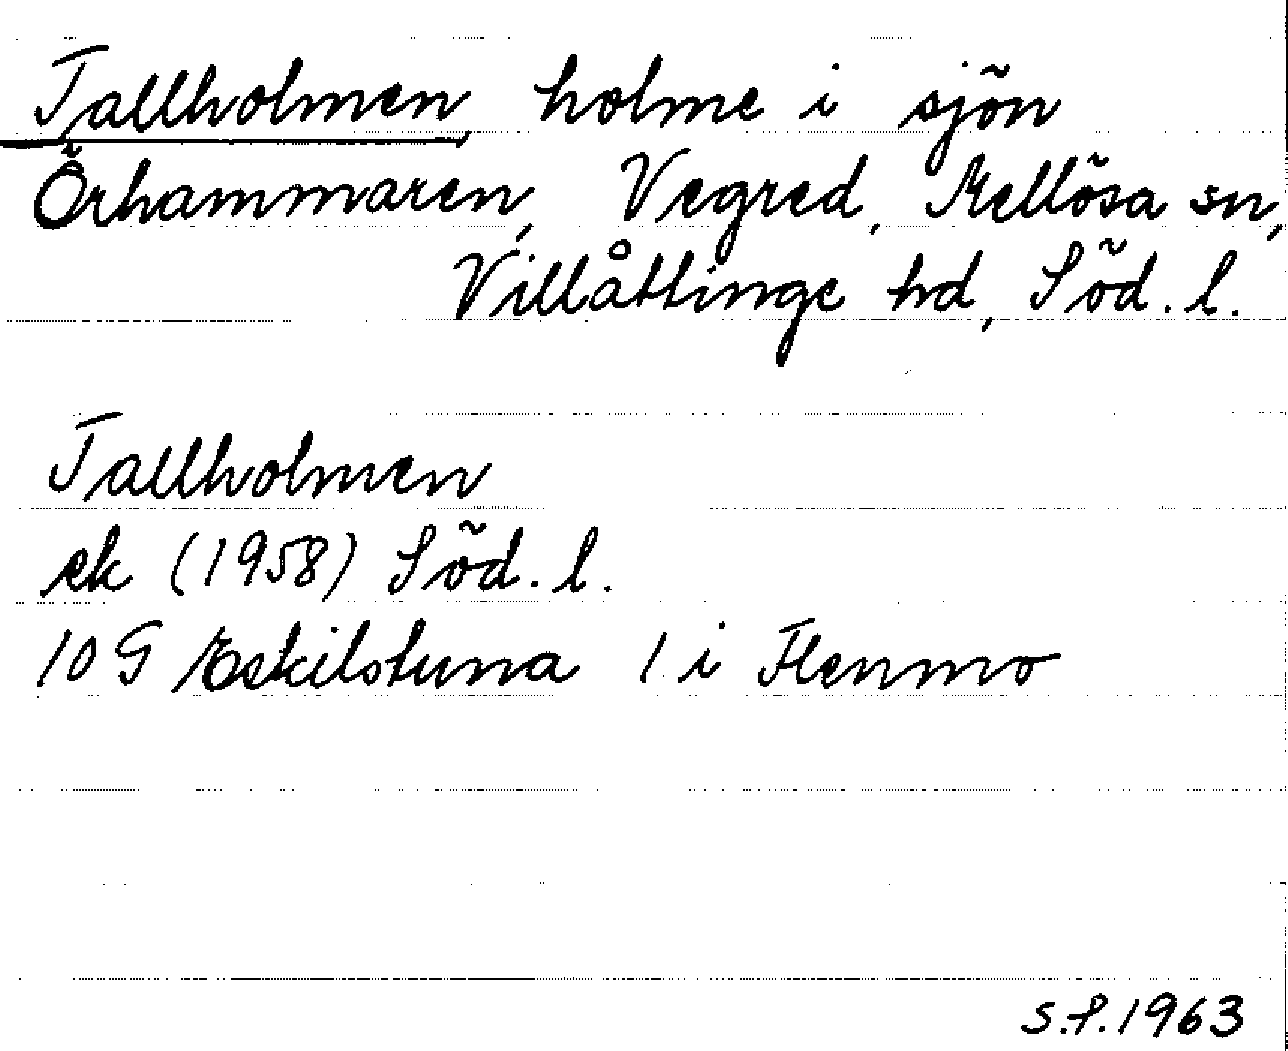 Tallholmen, holme i sjön
Örhammaren, Vegred, Mellösa sn,
Villåttinge hd, Söd. l.
Tallholmen
ek (1958) Söd. l.
10 G Eskilstuna 1 i Flenmo
S.P. 1963